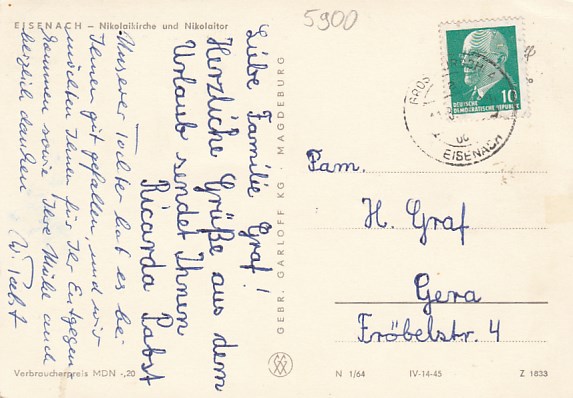 EISENACH – Nikolaikirche und Nikolaitor
5900
Liebe Familie Graf!
Herzliche Grüße aus dem
Urlaub sendet Ihnen
Ricarda Pabst
Unserer Tochter hat es bei
Ihnen gut gefallen, und wir
möchten Ihnen für Ihr Entgegen-
kommen sowie Ihre Mühe auch
herzlich danken
Pabst
Verbraucherpreis MDN -,20
GEBR. GARLOFF KG · MAGDEBURG
10
DEUTSCHE
DEMOKRATISCHE REPUBLIK
EISENACH
Fam.
H. Graf
Gera
Fröbelstr. 4
N 1/64 IV-14-45 Z 1833